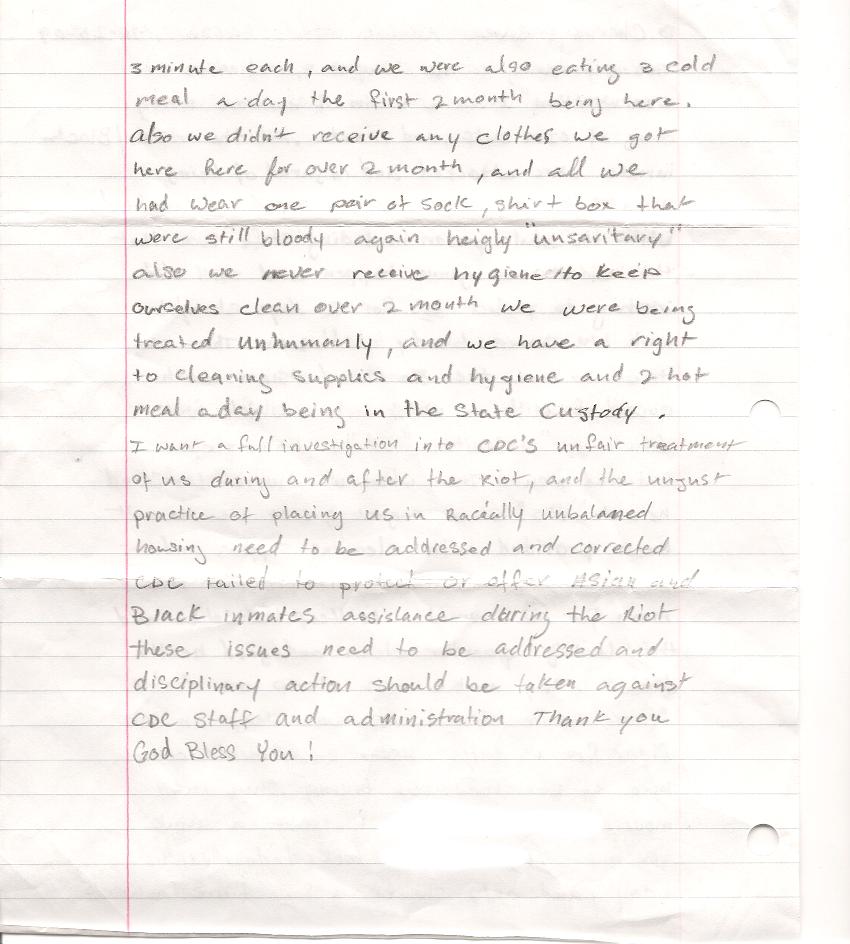 3 minute each, and we were also eating 3 cold
meal a day the first 2 month being here.
also we didn't receive any clothes we got
here here for over 2 month, and all we
had wear one pair of sock, shirt box that
were still bloody again heighly "unsanitary"
also we never receive hygiene to keep
ourselves clean over 2 month we were being
treated unhumanly, and we have a right
to cleaning supplies and hygiene and 2 hot
meal a day being in the State Custody.
I want a full investigation into CDC's unfair treatment
of us during and after the Riot, and the unjust
practice of placing us in Racially unbalaned
housing need to be addressed and corrected
CDC failed to protect or offer Asian and
Black inmates assistance during the Riot
these issues need to be addressed and
disciplinary action should be taken against
CDC Staff and administration Thank you
God Bless You!